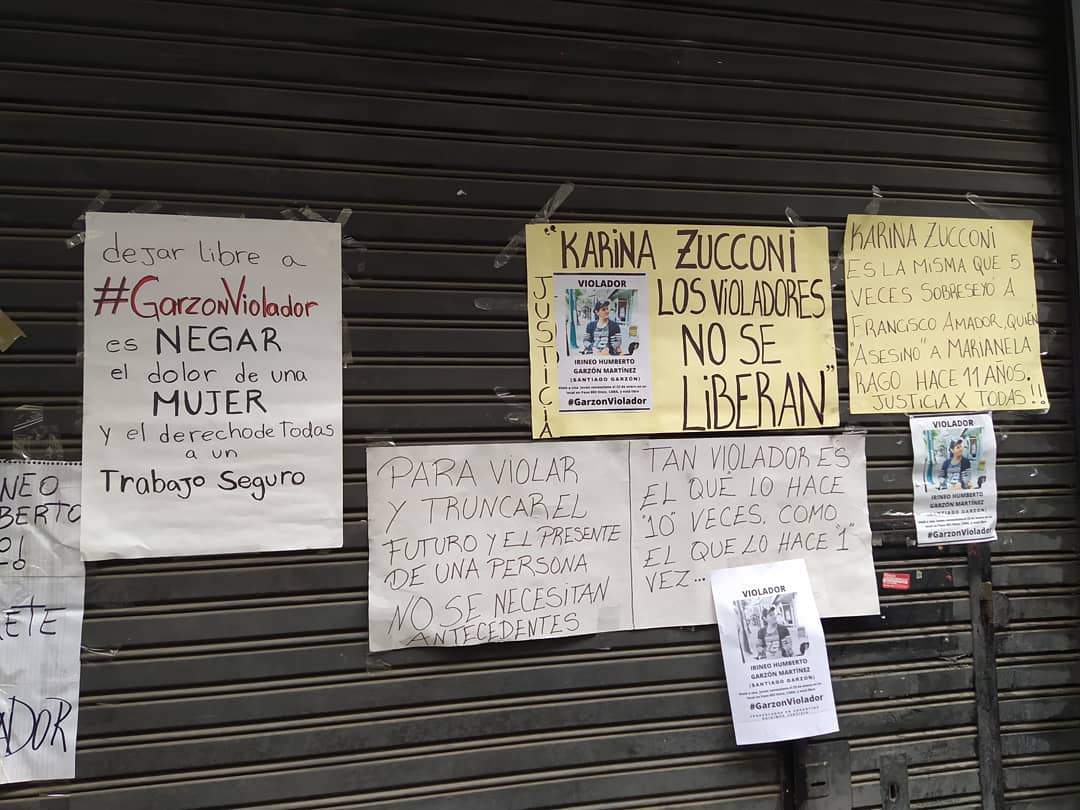 dejar libre a
#GarzonViolador
es NEGAR
el dolor de una
MUJER
y el derecho de Todas
a un
Trabajo Seguro
NEO
BERTO
O!
ETE
ADOR
"KARINA ZUCCONI
LOS VIOLADORES
NO SE
LIBERAN"
JUSTICIA
VIOLADOR
IRINEO HUMBERTO
GARZÓN MARTÍNEZ
(SANTIAGO GARZÓN)
#GarzonViolador
KARINA ZUCCONI
ES LA MISMA QUE 5
VECES SOBRESEYÓ A
FRANCISCO AMADOR, QUIÉN
"ASESINO" A MARIANELA
RAGO HACE 11 AÑOS.
JUSTICIA X TODAS!!
VIOLADOR
IRINEO HUMBERTO
GARZÓN MARTÍNEZ
(SANTIAGO GARZÓN)
#GarzonViolador
PARA VIOLAR
Y TRUNCAR EL
FUTURO Y EL PRESENTE
DE UNA PERSONA
NO SE NECESITAN
ANTECEDENTES
TAN VIOLADOR ES
EL QUE LO HACE
"10" VECES, COMO
EL QUE LO HACE "1"
VEZ...
VIOLADOR
IRINEO HUMBERTO
GARZÓN MARTÍNEZ
(SANTIAGO GARZÓN)
#GarzonViolador